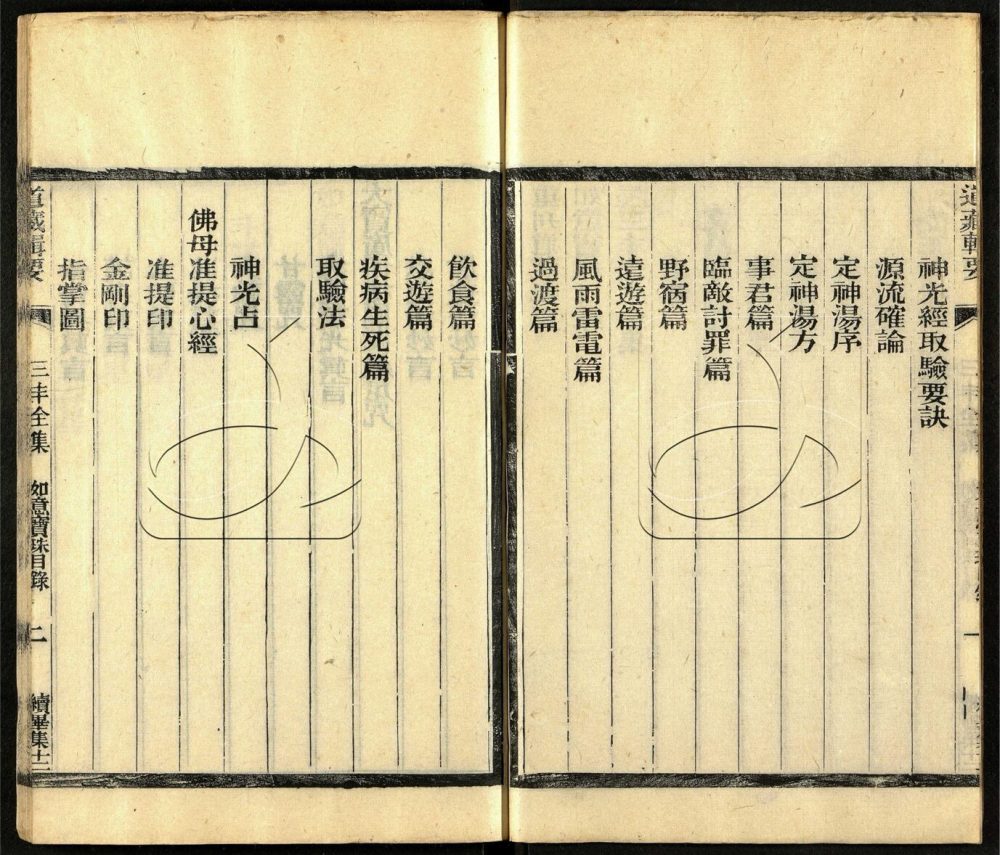 道藏輯要
神光經取驗要訣
源流確論
定神湯序
定神湯方
事君篇
臨敵討罪篇
野宿篇
遠遊篇
風雨雷電篇
過渡篇
飲食篇
交遊篇
疾病生死篇
取驗法
神光占
佛母准提心經
准提印
金剛印
指掌圖
道藏輯要
三丰全集
如意寶珠目錄
二
續畢集十二